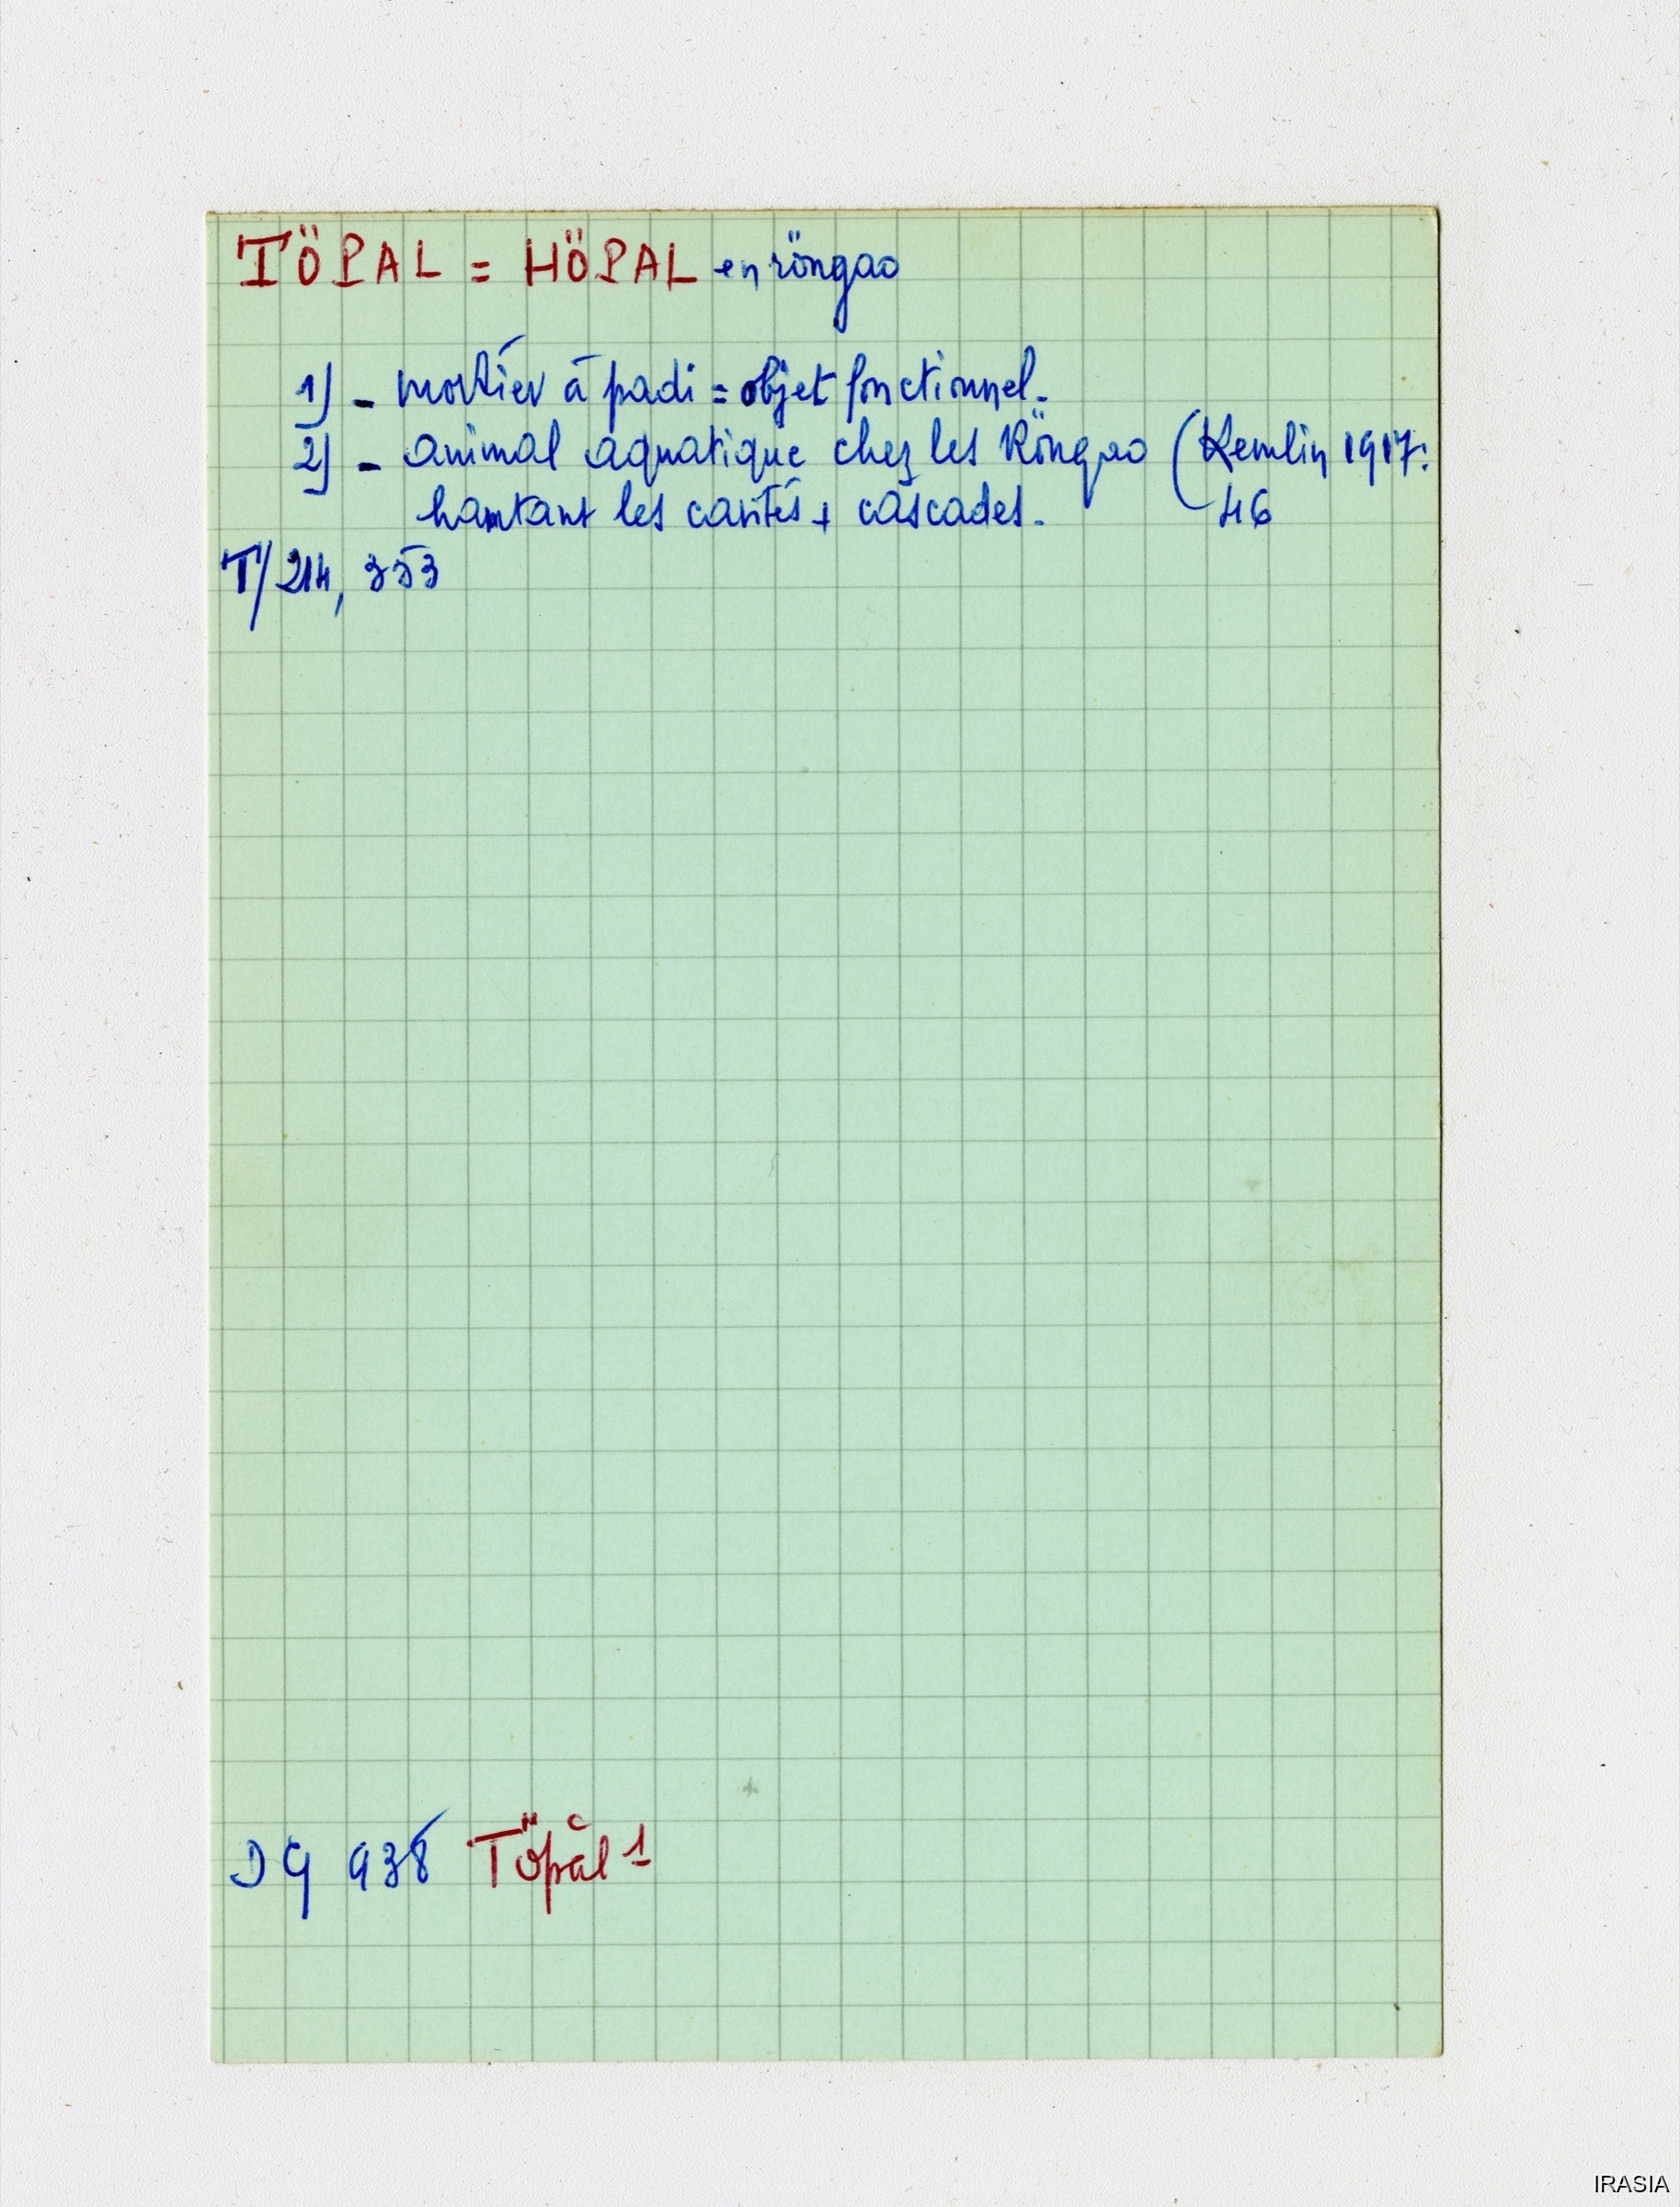 TÖPAL = HÖPAL en röngao
1) - mortier à padi = objet fonctionnel.
2) - animal aquatique chez les Röngao (Kemlin 1917:
hantant les cavités + cascades. 46
T/214, 353
DG 938 Töpăl 1
IRASIA